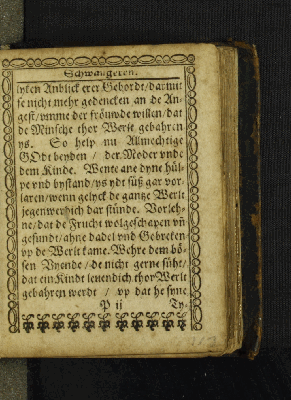 Schwangeren.
lyken Anblick erer Gebordt/darmit
se nicht mehr gedencken an de An-
gest/umme der fröuwde willen/dat
de Minsche thor Werlt gebahren
ys. So help nu Allmechtige
GOdt beyden / der Moder vnde
dem Kinde. Wente ane dyne hül-
pe vnd bystand/ys ydt süß gar vor-
laren/wenn gelyck de gantze Werlt
jegenwerdich dar stünde. Vorleh-
ne/dat de Frucht wolgeschapen vñ
gesundt/ahne dadel vnd Gebreken
vp de Werlt kame. Wehre dem bö-
sen Vyende/de nicht gerne süht/
dat ein Kindt levendich thor Werlt
gebahren werdt / vp dat he syne
P ii
Ty-